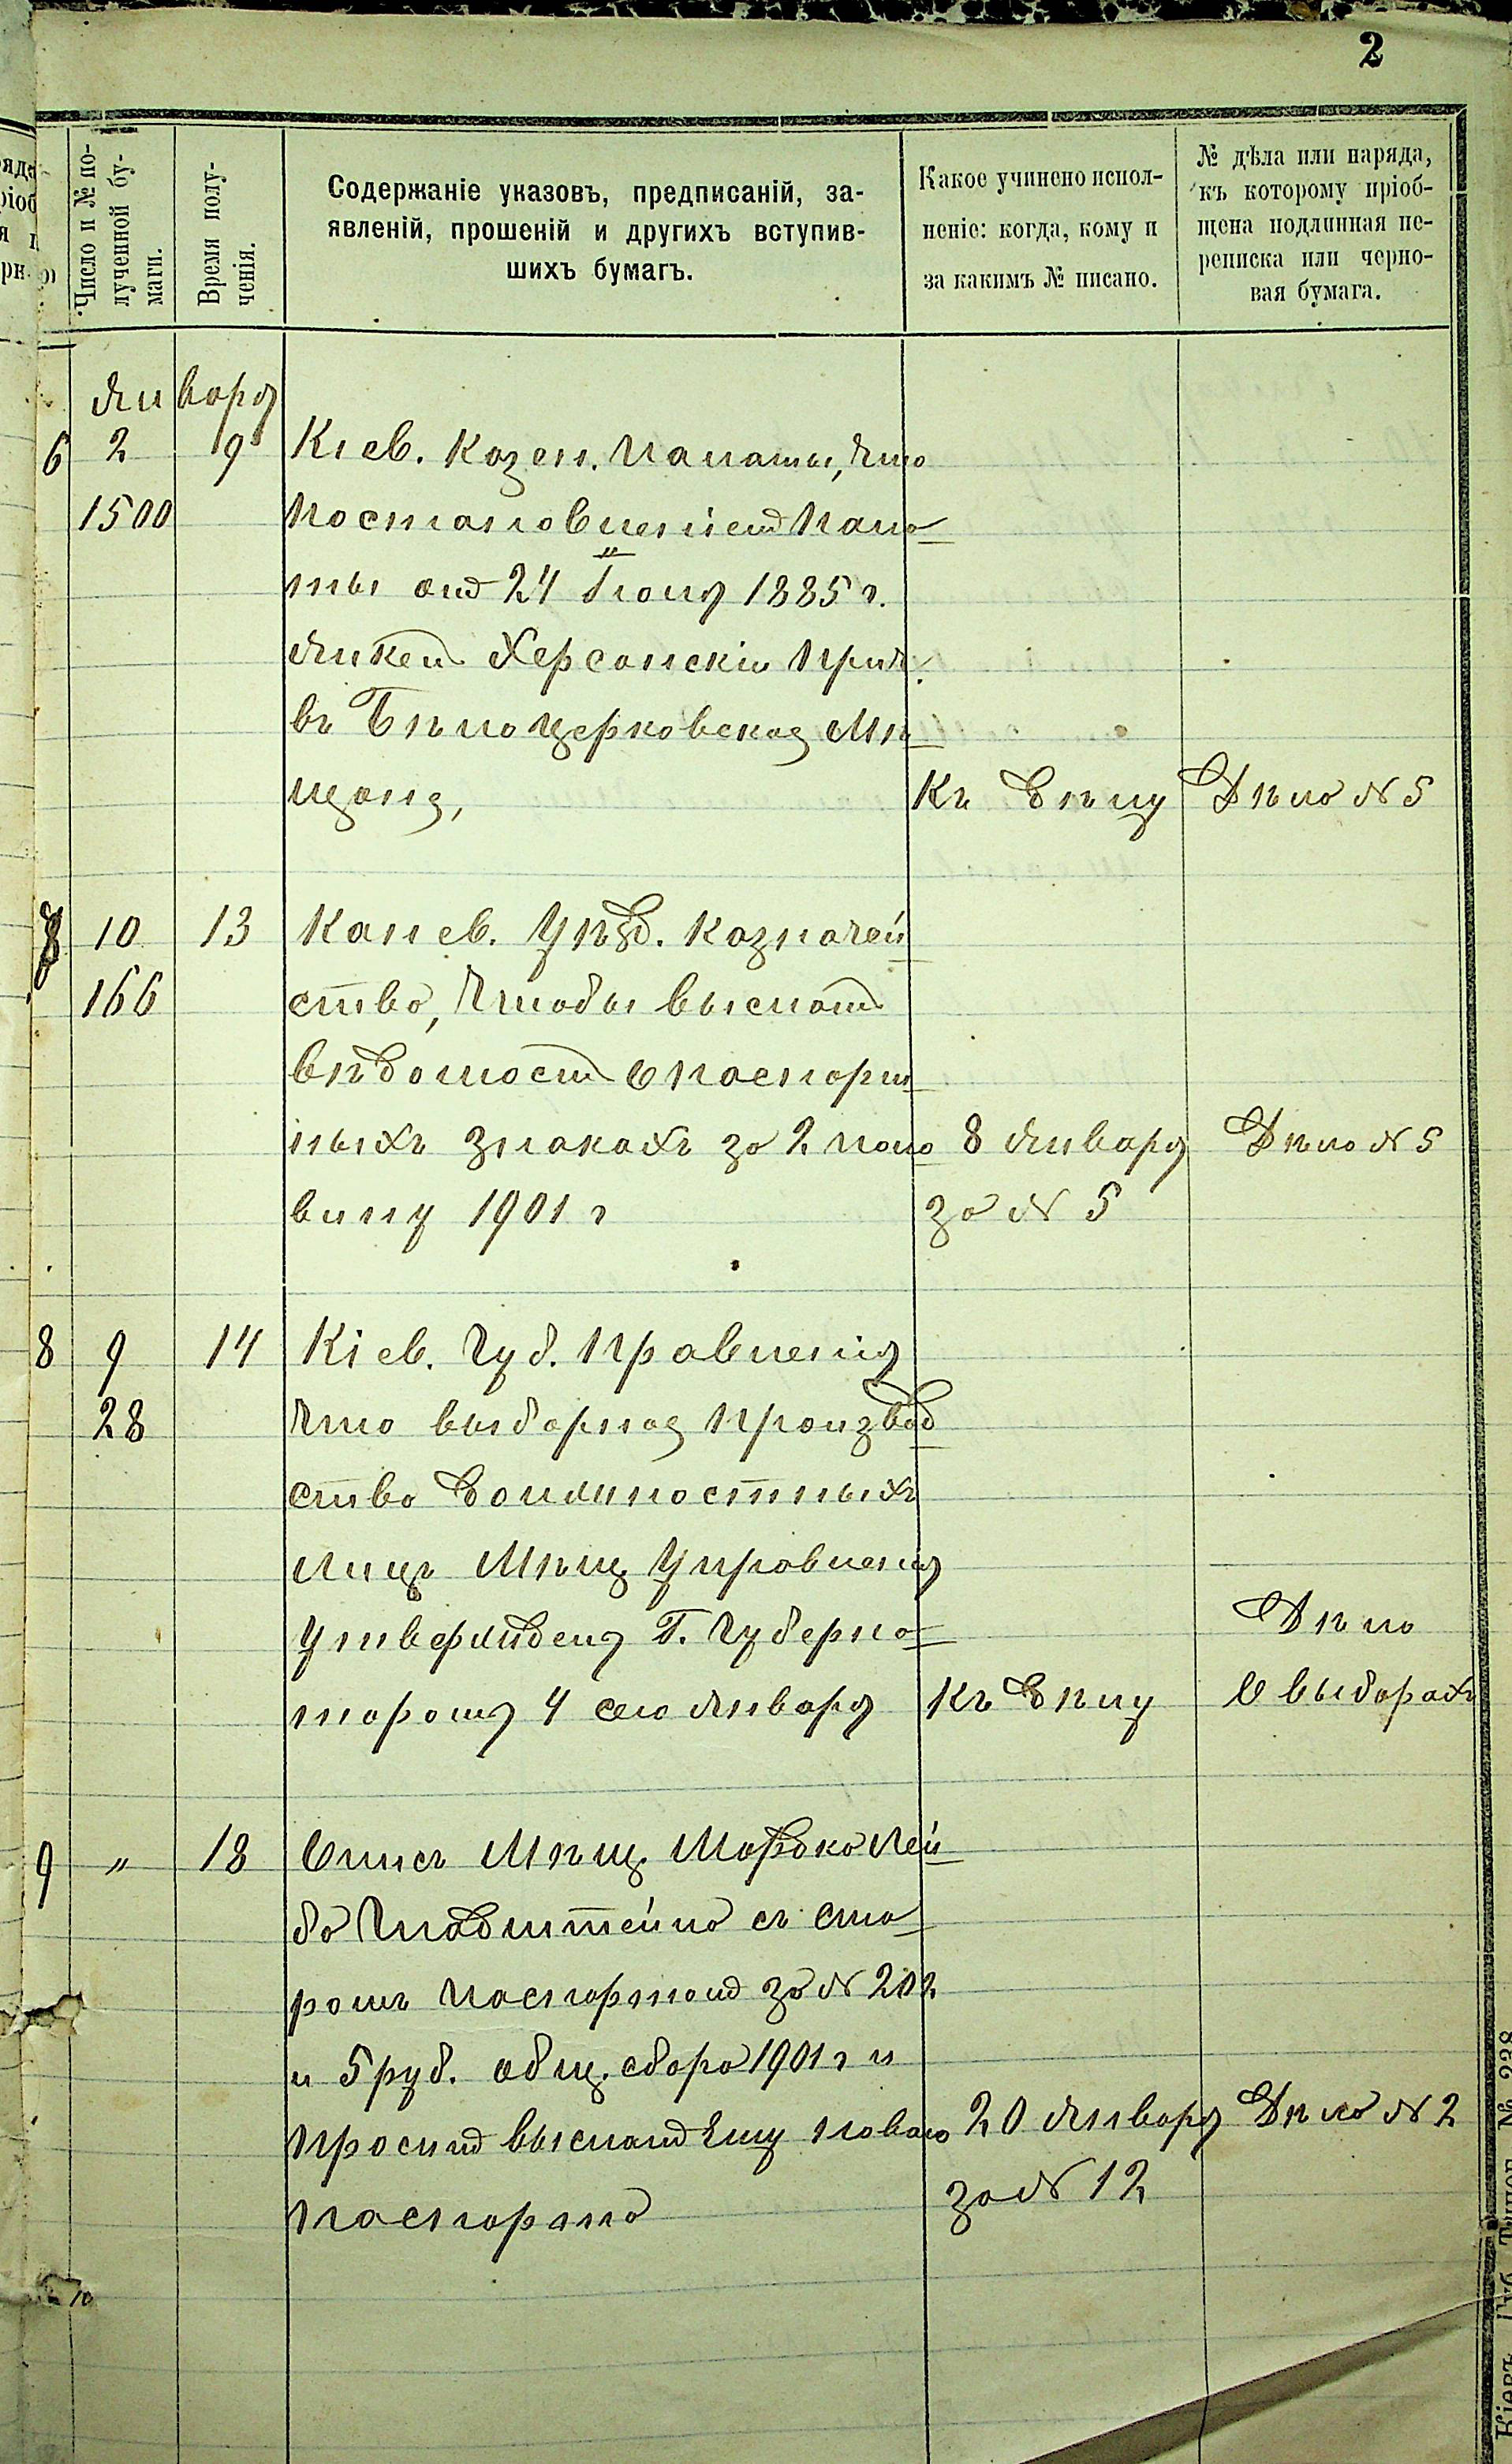 2
Число и № по-
лученной бу-
маги.
Время полу-
ченія.
Содержаніе указовъ, предписаній, за-
явленій, прошеній и другихъ вступив-
шихъ бумагъ.
Какое учинено испол-
неніе: когда, кому и
за какимъ № писано.
№ дѣла или наряда,
къ которому пріоб-
щена подлинная пе-
реписка или черно-
вая бумага.
Января
6 2 9 Кіев. Казен. Палаты, что
1500 постановленіем Пала-
ты от 24 Іюля 1885 г.
Херсонскій прич.
въ Бѣлоцерковскія Мѣ-
щане,
Къ дѣлу Дѣло № 5
7 10 13 Канев. Уѣзд. Казначей-
166 ство, чтобы выслат
вѣдомост о паспорт-
ныхъ знакахъ за 2 поло- 8 Января Дѣло № 5
вину 1901 г за № 5
8 9 14 Кіев. Губ. Правленія
28 что выборное производ-
ство должностныхъ
лицъ Мѣщ. Управленія
утверждена Г. Губерна- Дѣло
торомъ 4 сего Января Къ дѣлу О выборахъ
9 " 18 Мѣщ. Мордко Лей-
ба съ ста-
рымъ паспортом за № 202
и 5 руб. общ. сбора 1901 г и
просит выслат ему новаго 20 Января Дѣло № 2
паспорта за № 12
10
Кіевъ. Губ. Типог. № 238